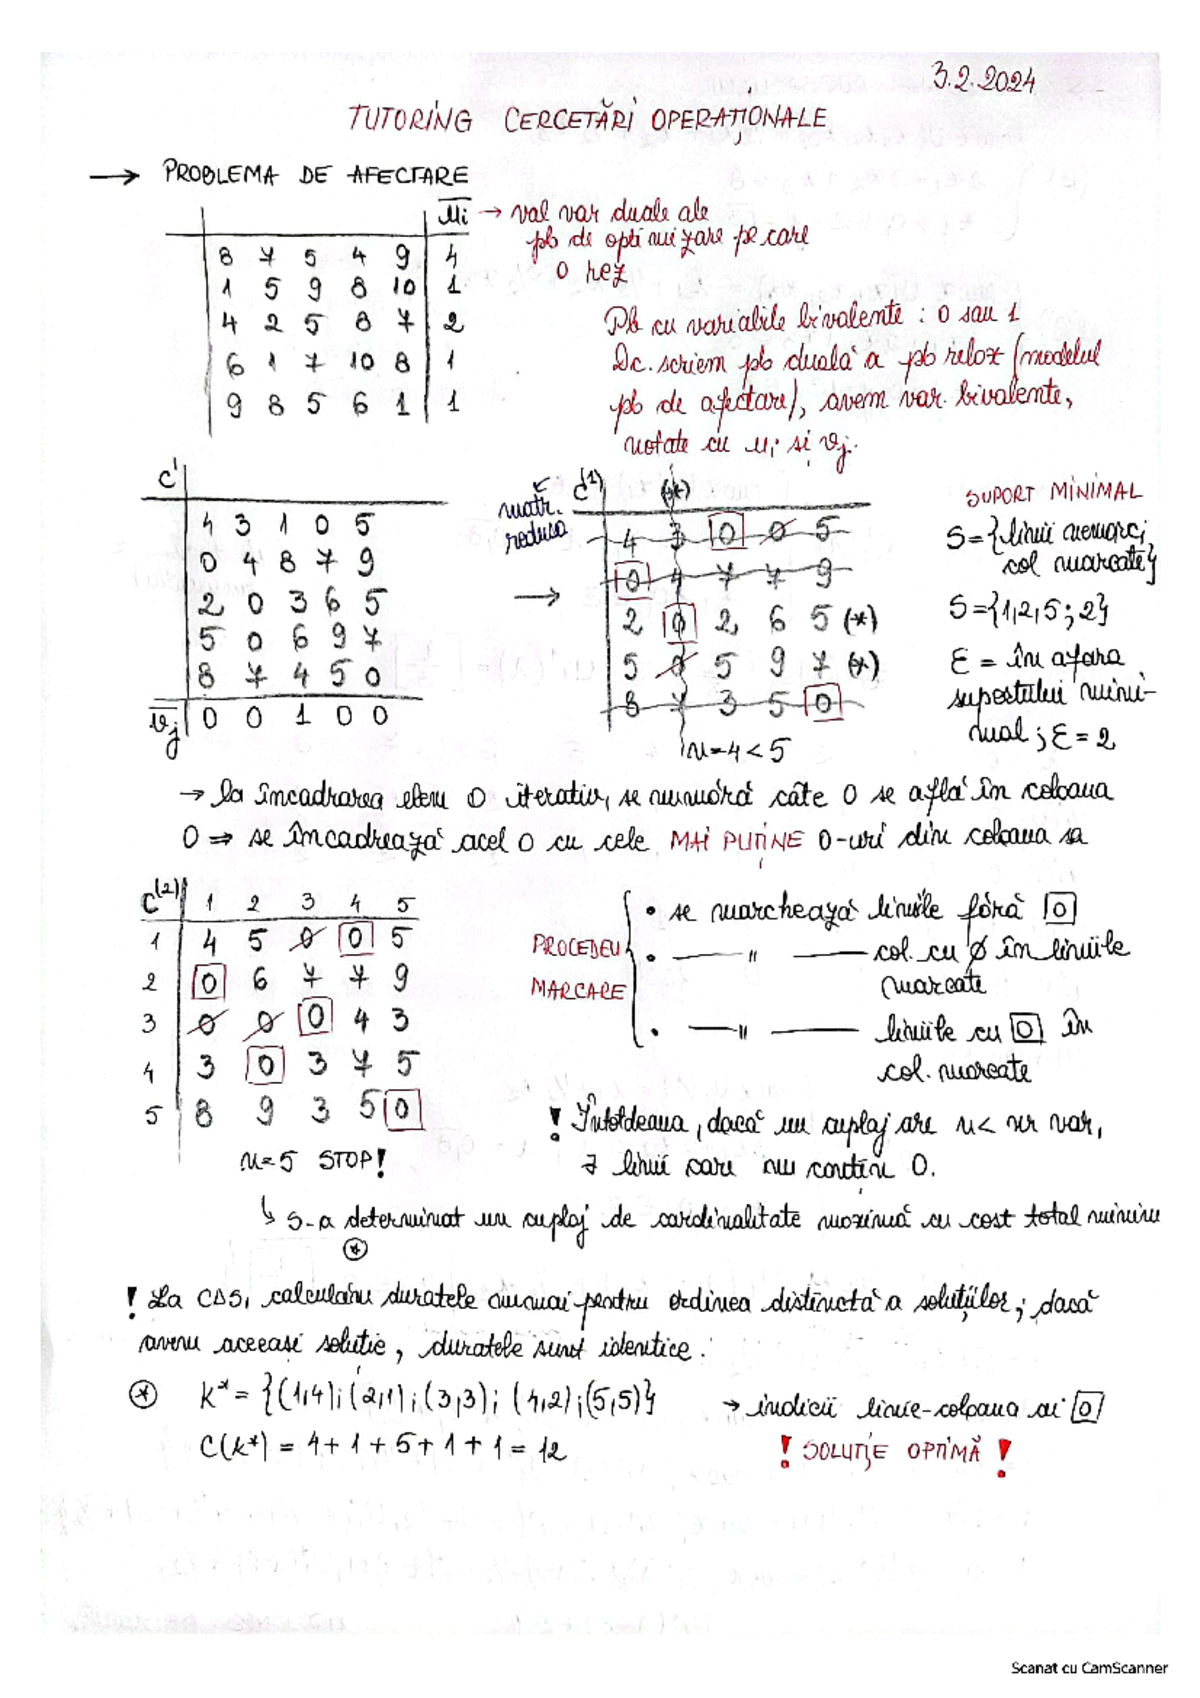 3.2.2024
TUTORING CERCETĂRI OPERAȚIONALE
→ PROBLEMA DE AFECTARE
ui → val var duale ale
pb de optimizare pe care
o rez
8 7 5 4 9 | 4
1 5 9 8 10 | 1
4 2 5 8 7 | 2
6 1 7 10 8 | 1
9 8 5 6 1 | 1
Pb cu variabile bivalente : 0 sau 1
Dc. scriem pb duală a pb relax (modelul
pb de afectare), avem var. bivalente,
notate cu ui și vj.
C'
4 3 1 0 5
0 4 8 7 9
2 0 3 6 5
5 0 6 9 7
8 7 4 5 0
vj 0 0 1 0 0
matr. redusa
→
C(1) (*)
4 3 0 0 5
0 4 7 7 9
2 0 2 6 5 (*)
5 0 5 9 7 (*)
8 7 3 5 0
n=4 < 5
SUPORT MINIMAL
S={linii nemarc;
col marcate}
S={1,2,5;2}
Ɛ = în afara
suportului mini-
mal ; Ɛ = 2
→ la încadrarea elem 0 iterativ, se numără câte 0 se află în coloana
0 ⇒ se încadrează acel 0 cu cele MAI PUȚINE 0-uri din coloana sa
C(2) 1 2 3 4 5
1 4 5 0 0 5
2 0 6 7 7 9
3 0 0 0 4 3
4 3 0 3 7 5
5 8 9 3 5 0
n=5 STOP!
PROCEDEU
MARCARE
• se marchează liniile fără 0
• —— " —— col. cu 0 în liniile
marcate
• —— " —— liniile cu 0 în
col. marcate
! Întotdeauna, dacă un cuplaj are n< nr var,
∃ linii care nu conțin 0.
↳ s-a determinat un cuplaj de cardinalitate maximă cu cost total minim
(*)
! La CDS, calculăm duratele numai pentru ordinea distinctă a soluțiilor; dacă
avem aceeași soluție, duratele sunt identice.
(*) K* = {(1,4);(2,1);(3,3);(4,2);(5,5)} → indicii linie-coloana ai 0
C(K*) = 4+1+5+1+1 = 12
! SOLUȚIE OPTIMĂ !
Scanat cu CamScanner